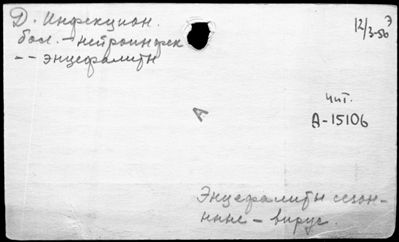 Д. Инфекцион.
бол. – нейроинфек
-- энцефалиты
12/3-56 Э
А
чит.
А-15106
Энцефалиты сезон-
ные – вирус.